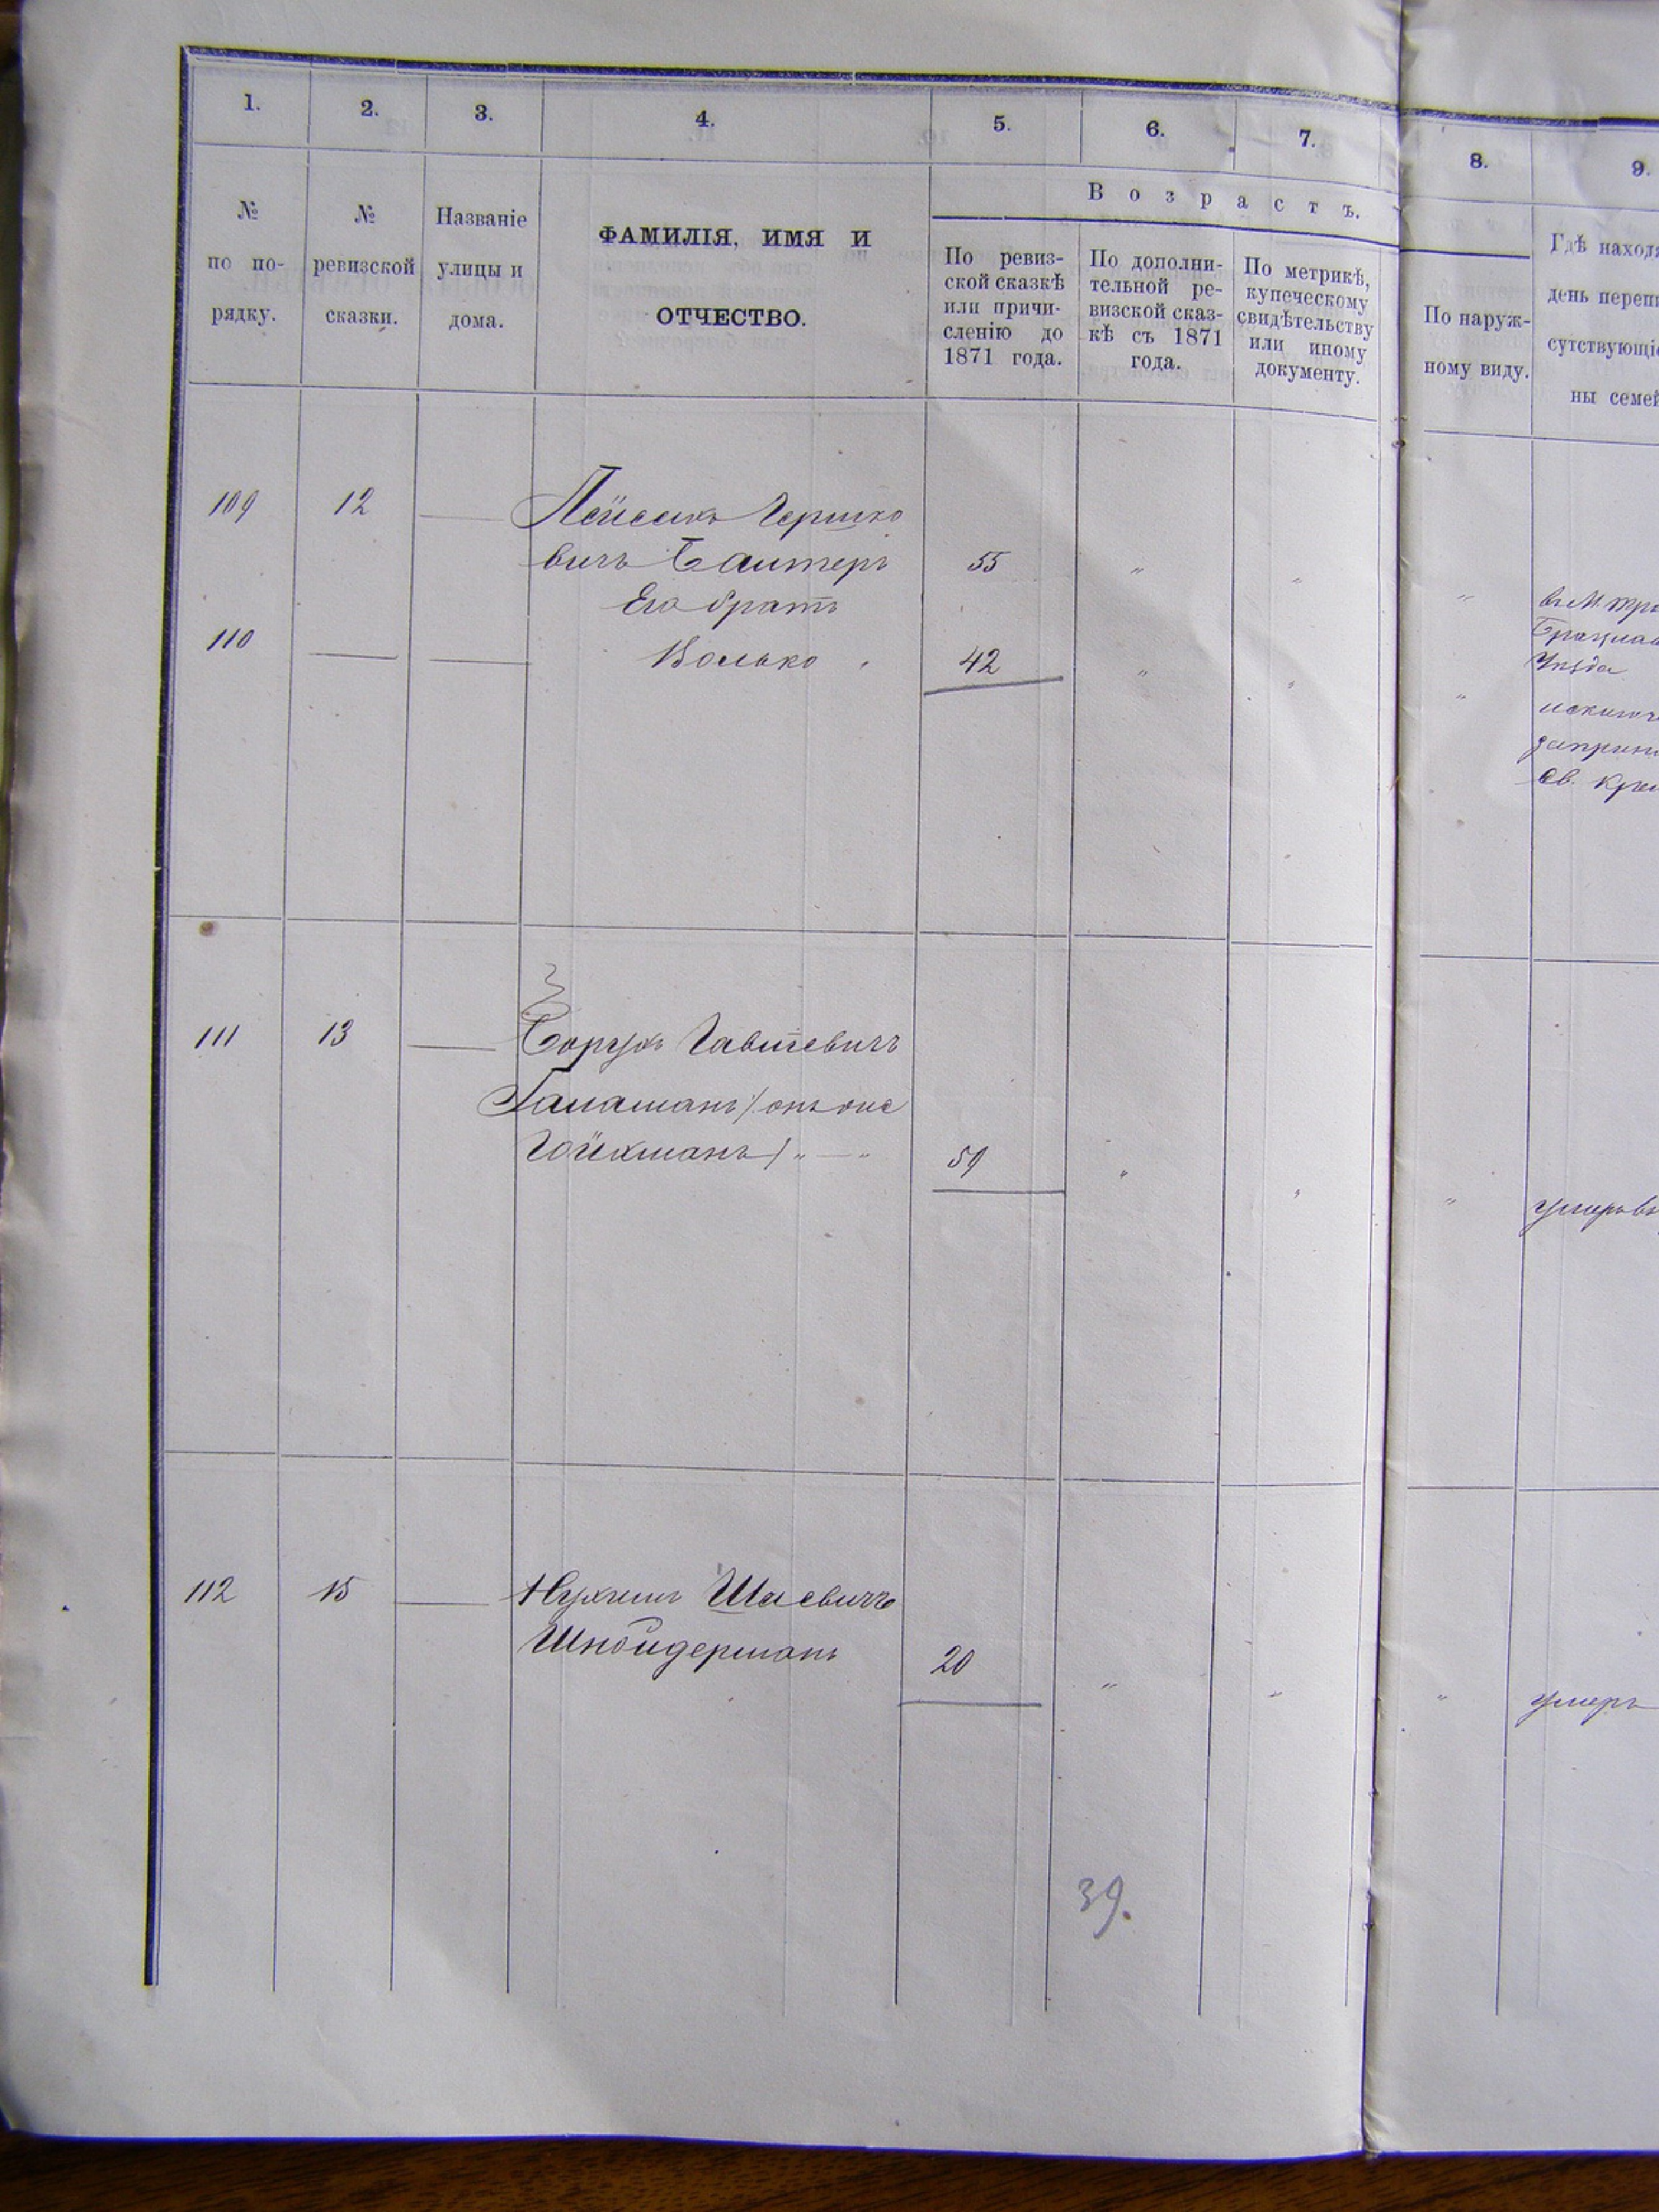 1. 2. 3. 4. 5. 6. 7. 8. 9.
Возрастъ.
№ по по-рядку.
№ ревизской сказки.
Названіе улицы и дома.
ФАМИЛІЯ, ИМЯ И
ОТЧЕСТВО.
По ревиз-
ской сказкѣ
или причи-
сленію до
1871 года.
По дополни-
тельной ре-
визской сказ-
кѣ съ 1871
года.
По метрикѣ,
купеческому
свидѣтельству
или иному
документу.
По наруж-
ному виду.
Гдѣ наход
день переп
сутствующі
ны семе
109 12 — Лейбишъ Гершко
вичъ Балтеръ 55 " " "
Его братъ
110 — — Волько 42 " " "
Уѣзда
св. кре
111 13 — Борухъ Гавшевичъ
онъ же
Гойхманъ " — " 59 " " "
умеръ въ
112 15 — Нухимъ Шаевичъ
Шнойдерманъ 20 " " " умеръ
39.